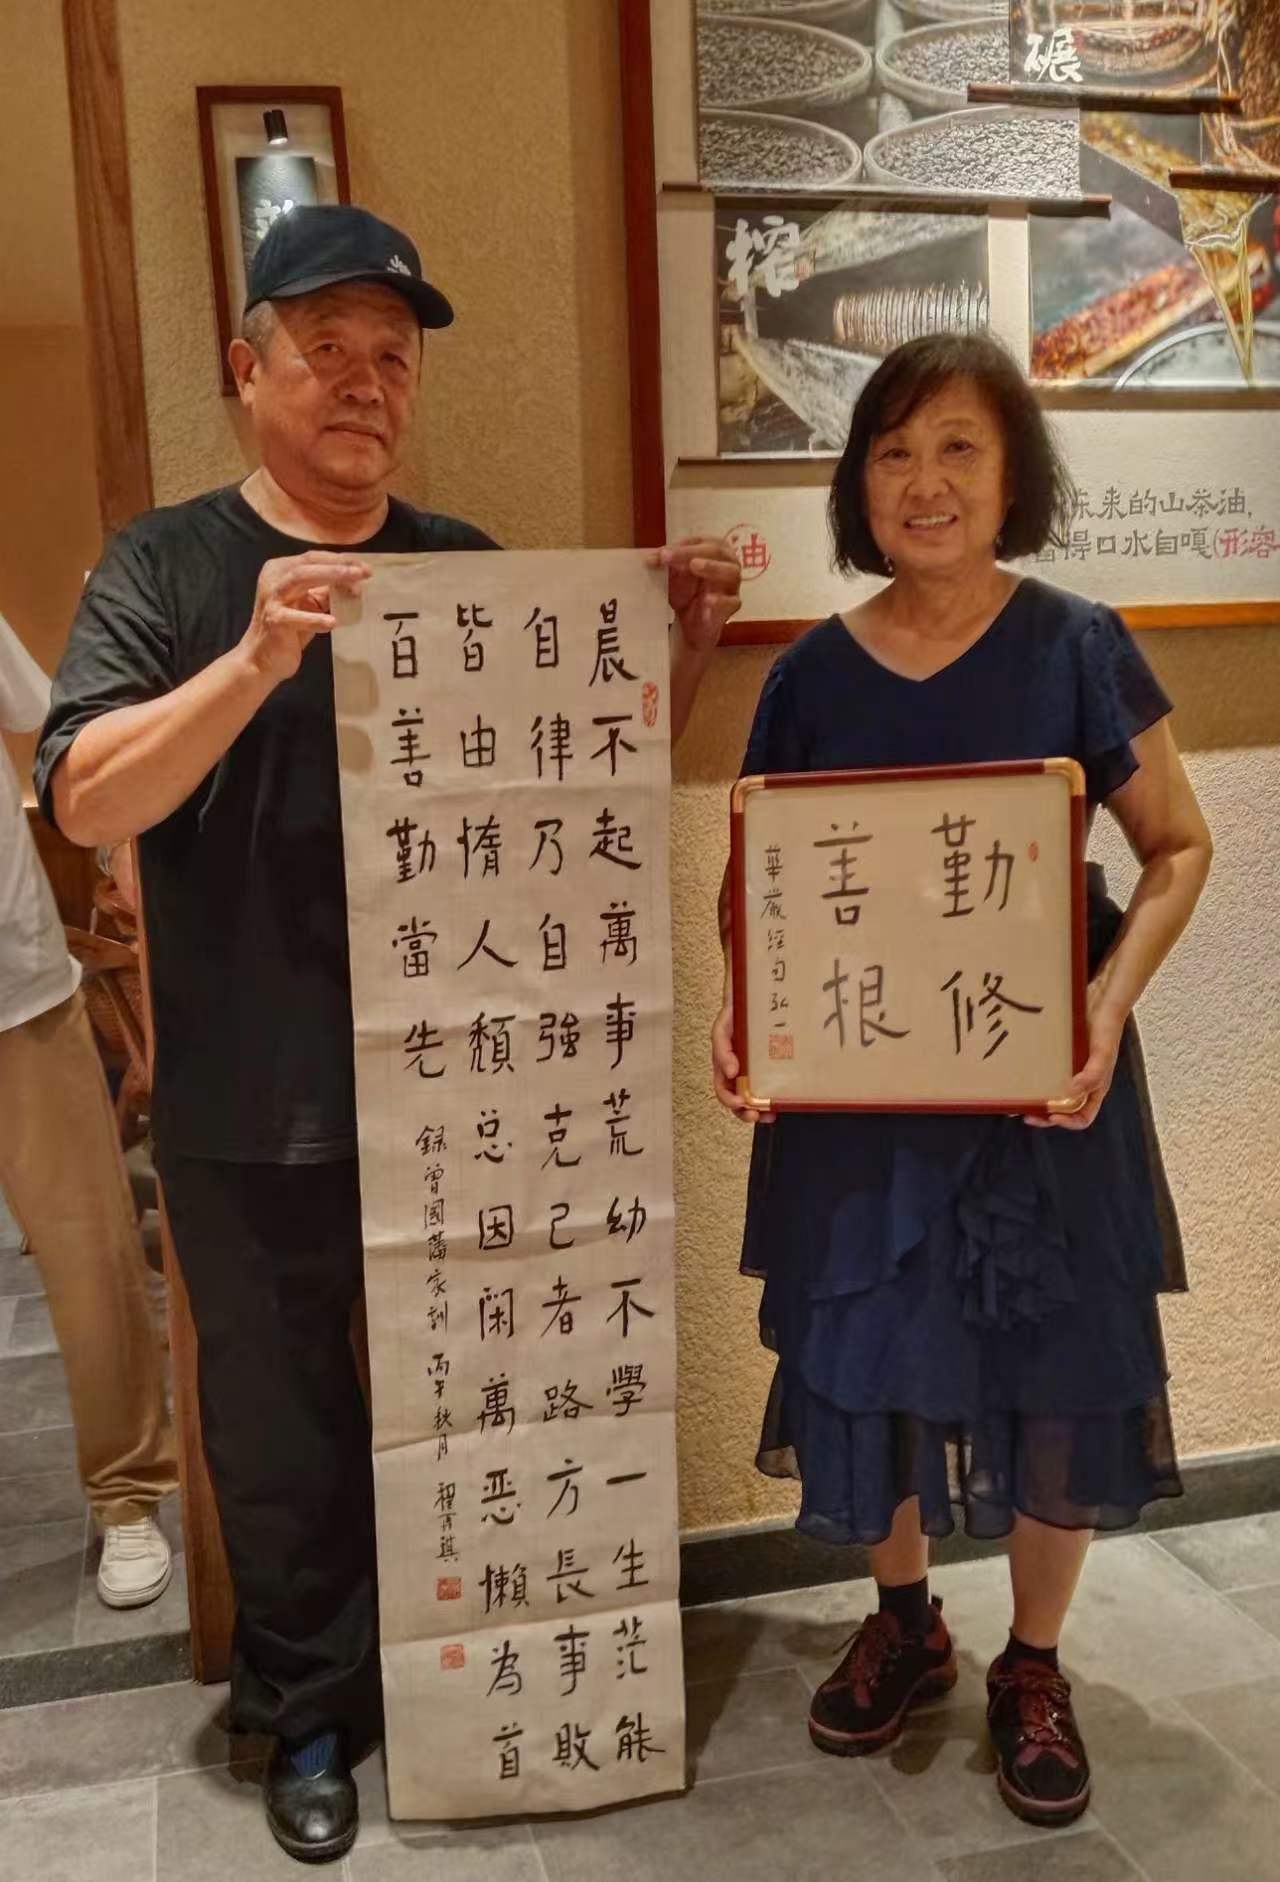 碾
榨
东来的山茶油,
得口水自嘎(形容
油
晨不起萬事荒幼不學一生茫能
自律乃自強克己者路方長事敗
皆由惰人頹总因閑萬恶懶為首
百善勤當先
錄曾國藩家訓 丙午秋月
勤修
善根
華嚴經句弘一